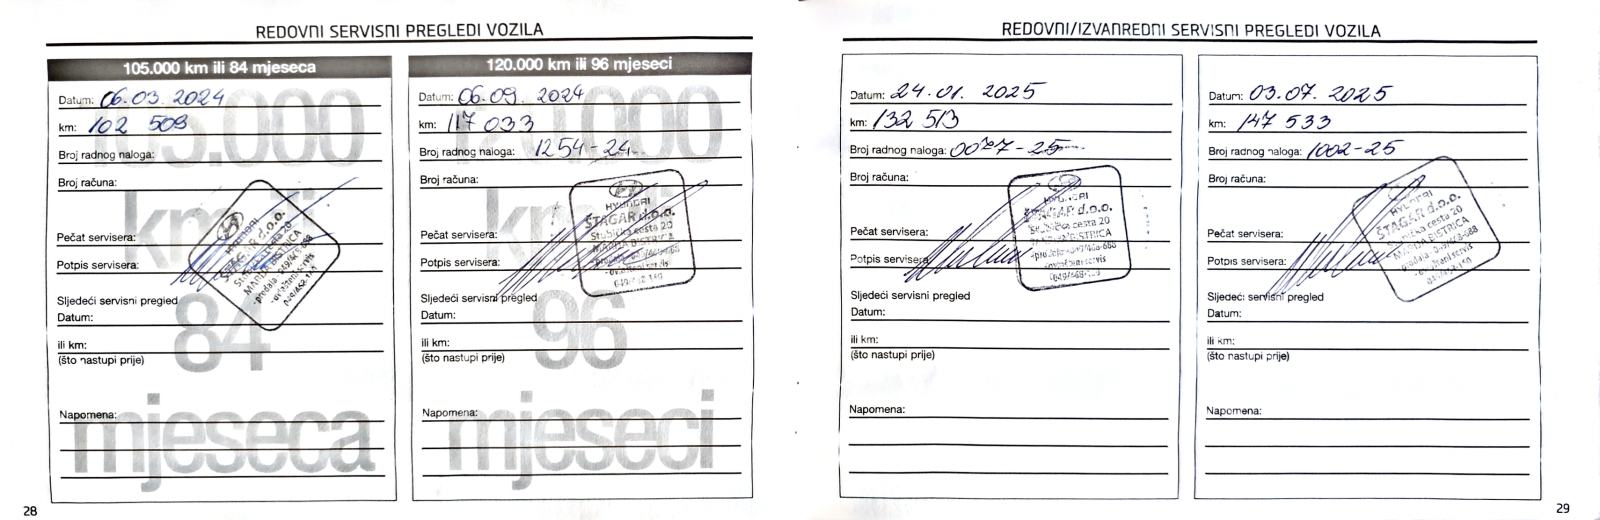 REDOVNI SERVISNI PREGLEDI VOZILA
105.000 km ili 84 mjeseca
105.000
km ili
84
mjeseca
Datum: 06.03. 2024
km: 102 509
Broj radnog naloga:
Broj računa:
Pečat servisera:
HYUNDAI
ŠTAGAR d.o.o.
Stubička cesta 20
MARIJA BISTRICA
-prodaja
-ovlašteni servis
Potpis servisera:
Sljedeći servisni pregled
Datum:
ili km:
(što nastupi prije)
Napomena:
28
120.000 km ili 96 mjeseci
120.000
km ili
96
mjeseci
Datum: 06.09. 2024
km: 117 033
Broj radnog naloga: 1254-24
Broj računa:
Pečat servisera:
HYUNDAI
ŠTAGAR d.o.o.
Stubička cesta 20
MARIJA BISTRICA
-ovlašteni servis
Potpis servisera:
Sljedeći servisni pregled
Datum:
ili km:
(što nastupi prije)
Napomena:
REDOVNI/IZVANREDNI SERVISNI PREGLEDI VOZILA
Datum: 24.01. 2025
km: 132 513
Broj radnog naloga: 0077-25
Broj računa:
Pečat servisera:
HYUNDAI
ŠTAGAR d.o.o.
Stubička cesta 20
MARIJA BISTRICA
-ovlašteni servis
Potpis servisera:
Sljedeći servisni pregled
Datum:
ili km:
(što nastupi prije)
Napomena:
Datum: 03.07. 2025
km: 147 533
Broj radnog naloga: 1002-25
Broj računa:
Pečat servisera:
HYUNDAI
ŠTAGAR d.o.o.
Stubička cesta 20
MARIJA BISTRICA
-ovlašteni servis
Potpis servisera:
Sljedeći servisni pregled
Datum:
ili km:
(što nastupi prije)
Napomena:
29